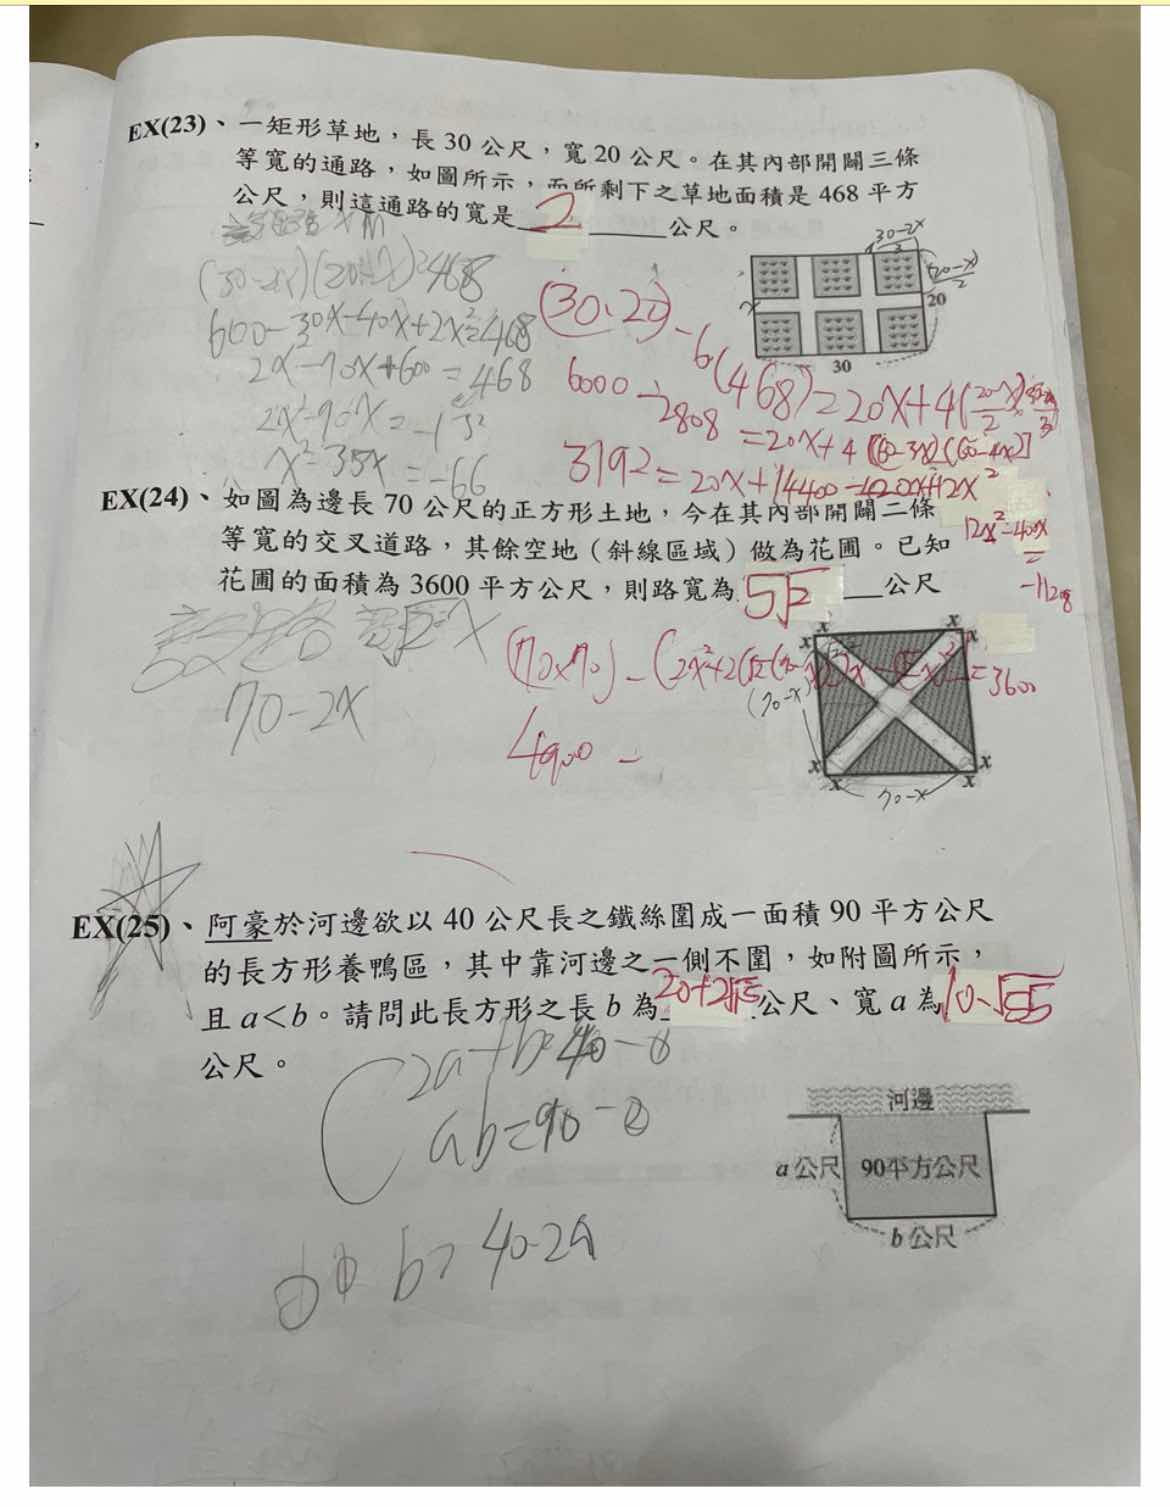 EX(23)、一矩形草地，長 30 公尺，寬 20 公尺。在其內部開闢三條
等寬的通路，如圖所示，而所剩下之草地面積是 468 平方
公尺，則這通路的寬是 2 公尺。
(30-2x)(20-x)=468
600-30x-40x+2x²=468
2x²-70x+600=468
x²-35x=-66
30-2x
20
30
(30·20)-6(468)=20x+4
3192=20x+14400
EX(24)、如圖為邊長 70 公尺的正方形土地，今在其內部開闢二條
等寬的交叉道路，其餘空地（斜線區域）做為花圃。已知
花圃的面積為 3600 平方公尺，則路寬為 5√2 公尺
70-2x
(70×70)-
=3600
4900 -
x
x
x
x
x
x
x
x
70-x
EX(25)、阿豪於河邊欲以 40 公尺長之鐵絲圍成一面積 90 平方公尺
的長方形養鴨區，其中靠河邊之一側不圍，如附圖所示，
且 a<b。請問此長方形之長 b 為 20+2√55 公尺、寬 a 為 10-√55
公尺。
2a+b=40
ab=90-②
40-2a
河邊
a 公尺
90平方公尺
b 公尺